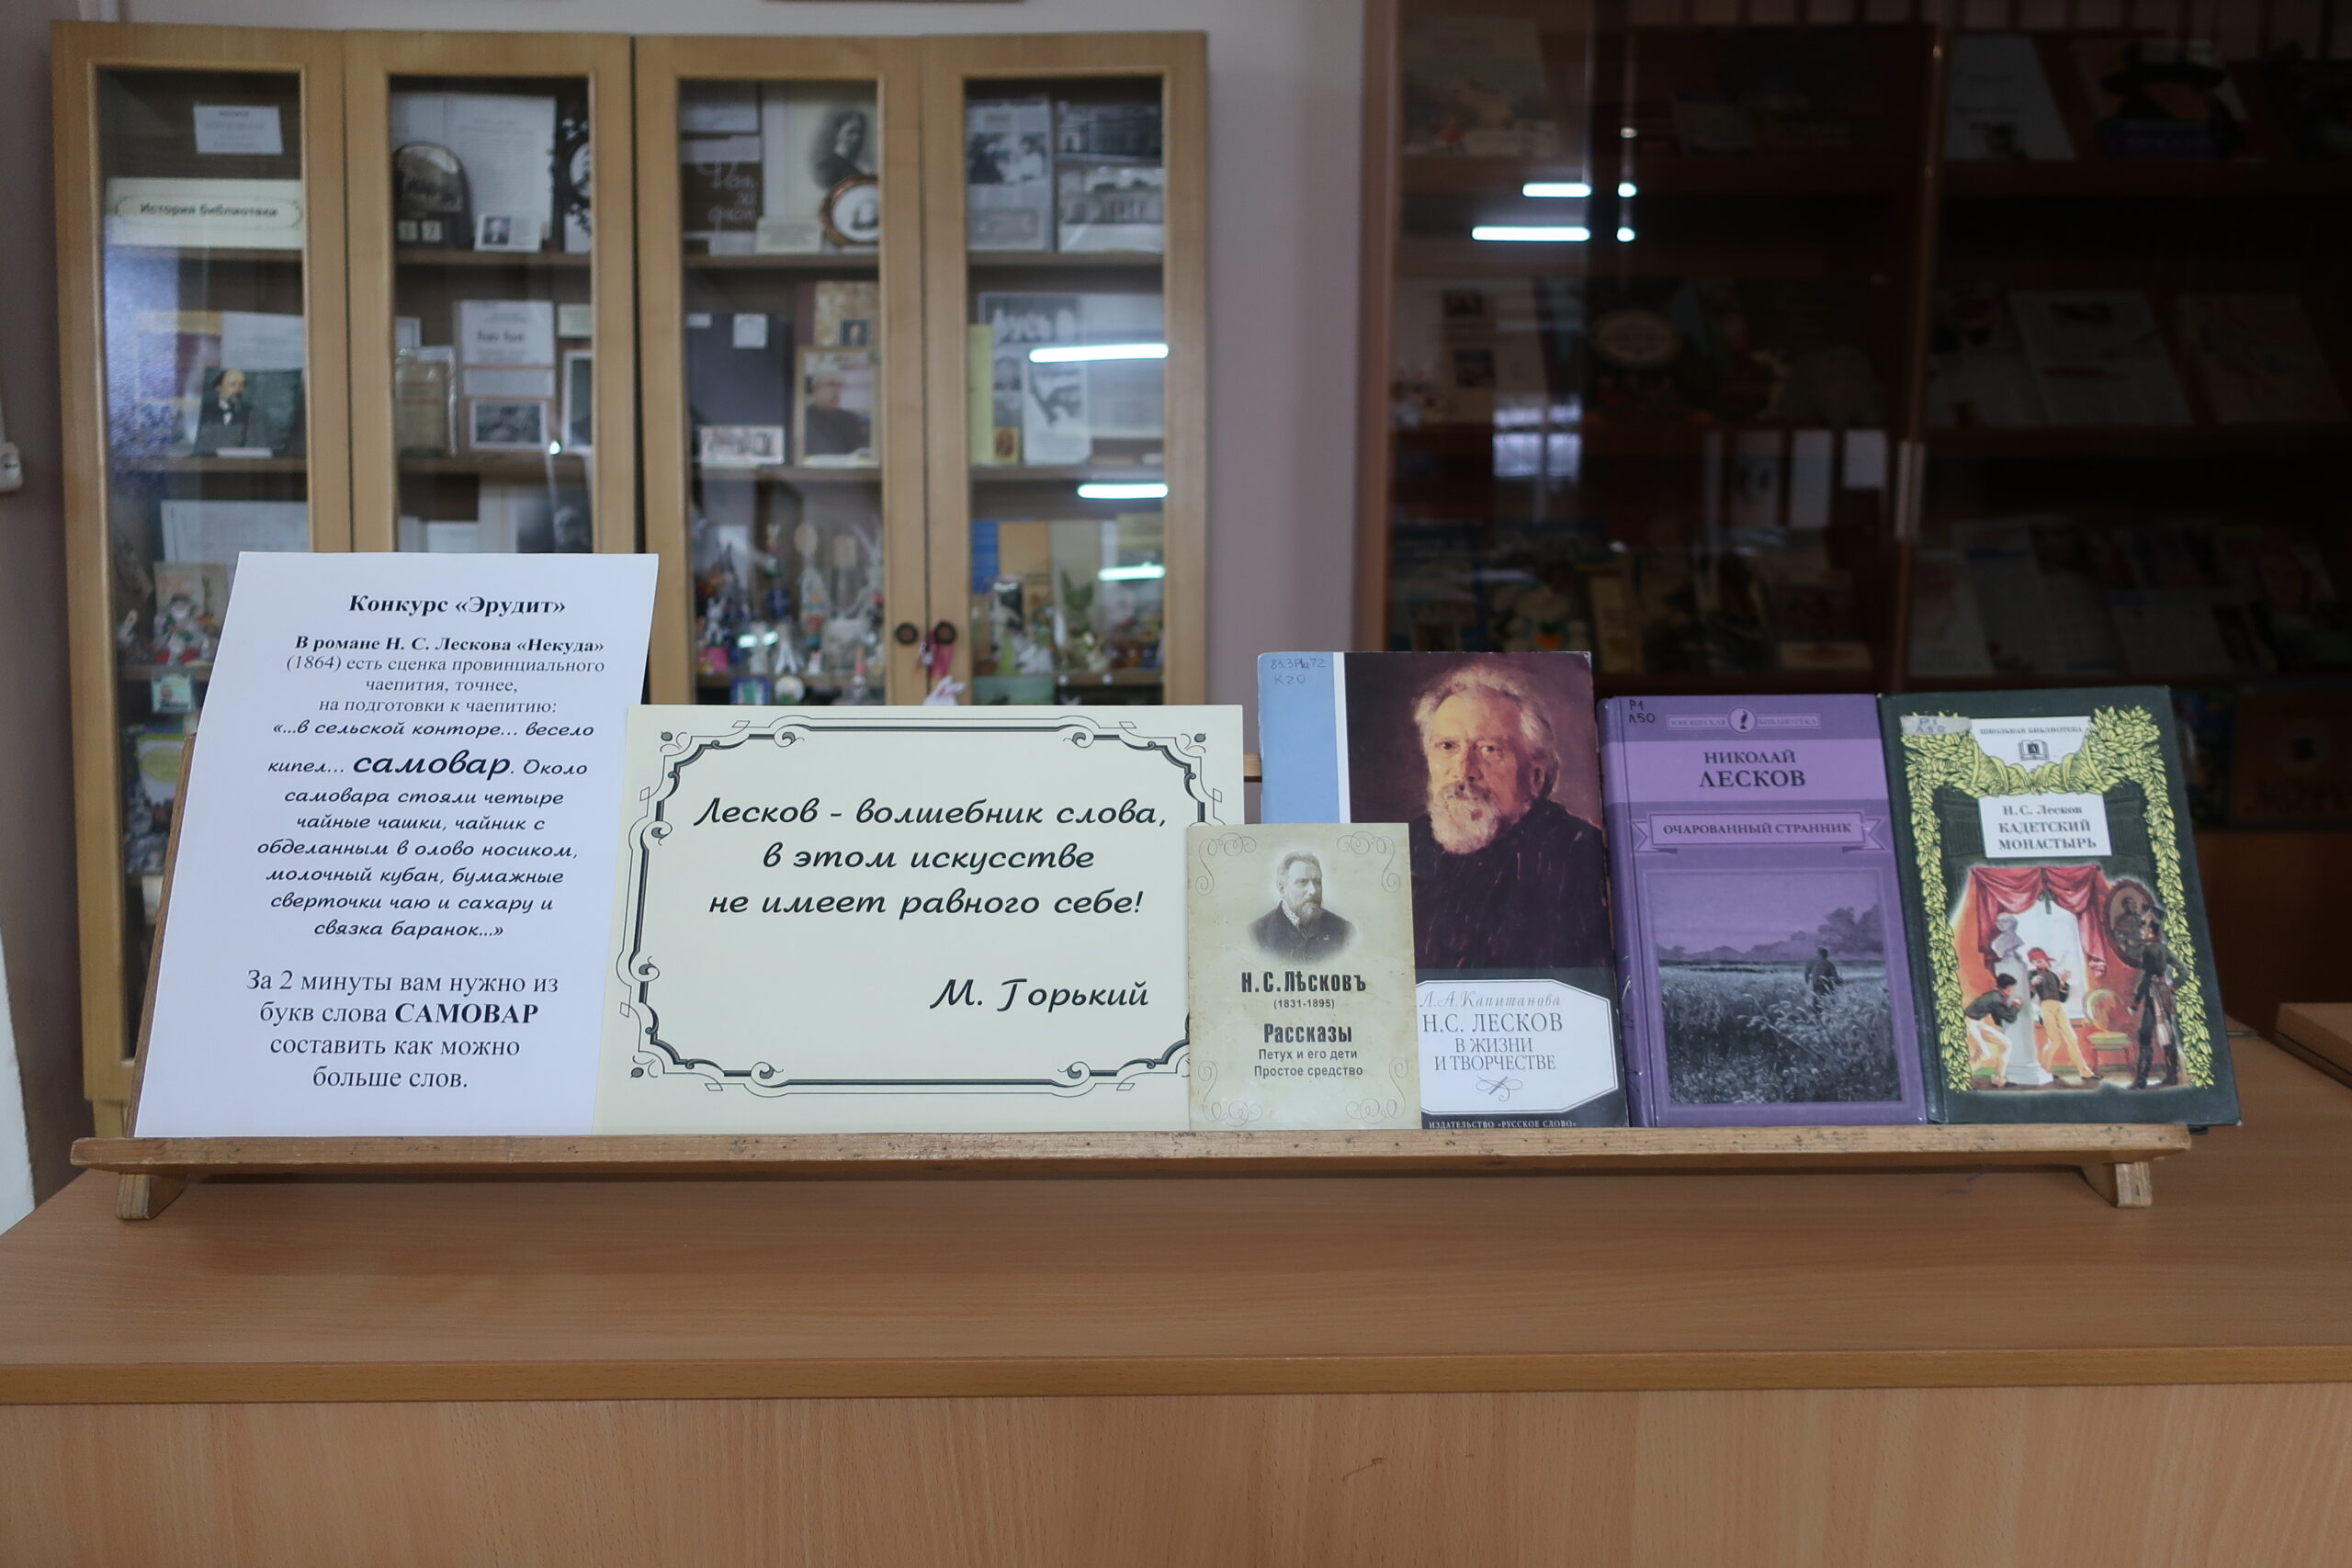 История библиотеки
Конкурс «Эрудит»
В романе Н. С. Лескова «Некуда»
(1864) есть сценка провинциального
чаепития, точнее,
на подготовки к чаепитию:
«...в сельской конторе... весело
кипел... самовар. Около
самовара стояли четыре
чайные чашки, чайник с
обделанным в олово носиком,
молочный кубан, бумажные
сверточки чаю и сахару и
связка баранок...»
За 2 минуты вам нужно из
букв слова САМОВАР
составить как можно
больше слов.
Лесков - волшебник слова,
в этом искусстве
не имеет равного себе!
М. Горький
Н.С.Лѣсковъ
(1831-1895)
Рассказы
Петух и его дети
Простое средство
К20
Л.А.Капитанова
Н.С. ЛЕСКОВ
В ЖИЗНИ
И ТВОРЧЕСТВЕ
ИЗДАТЕЛЬСТВО «РУССКОЕ СЛОВО»
Р1
Л50
ЮНОШЕСКАЯ БИБЛИОТЕКА
НИКОЛАЙ
ЛЕСКОВ
ОЧАРОВАННЫЙ СТРАННИК
Р1
Л50
ШКОЛЬНАЯ БИБЛИОТЕКА
Н. С. Лесков
КАДЕТСКИЙ
МОНАСТЫРЬ